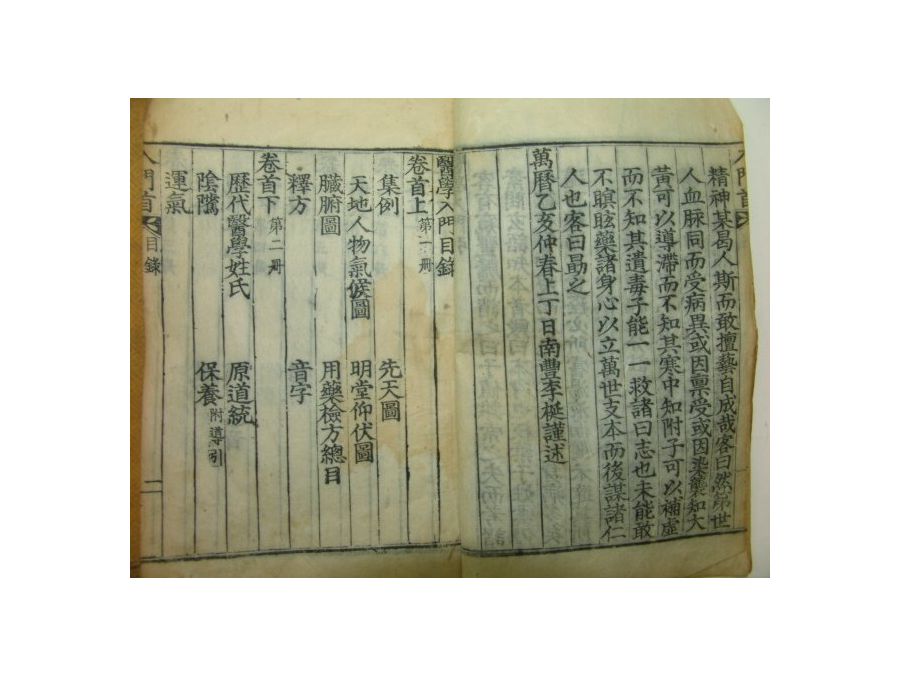 精神某曷人斯而敢擅藝自成哉客曰然第世
人血脉同而受病異或因禀受或因染藥知大
黃可以導滯而不知其寒中知附子可以補虛
而不知其遺毒子能一一救諸曰志也未能敢
不瞑眩藥諸身心以立萬世支本而後謀諸仁
人也客曰勗之
萬曆乙亥仲春上丁日南豐李梴謹述
醫學入門目錄
卷首上 第一冊
集例 先天圖
天地人物氣候圖 明堂仰伏圖
臟腑圖 用藥檢方總目
釋方 音字
卷首下 第二冊
歷代醫學姓氏 原道統
陰隲 保養 附導引
運氣
入門首 目錄 一
入門首